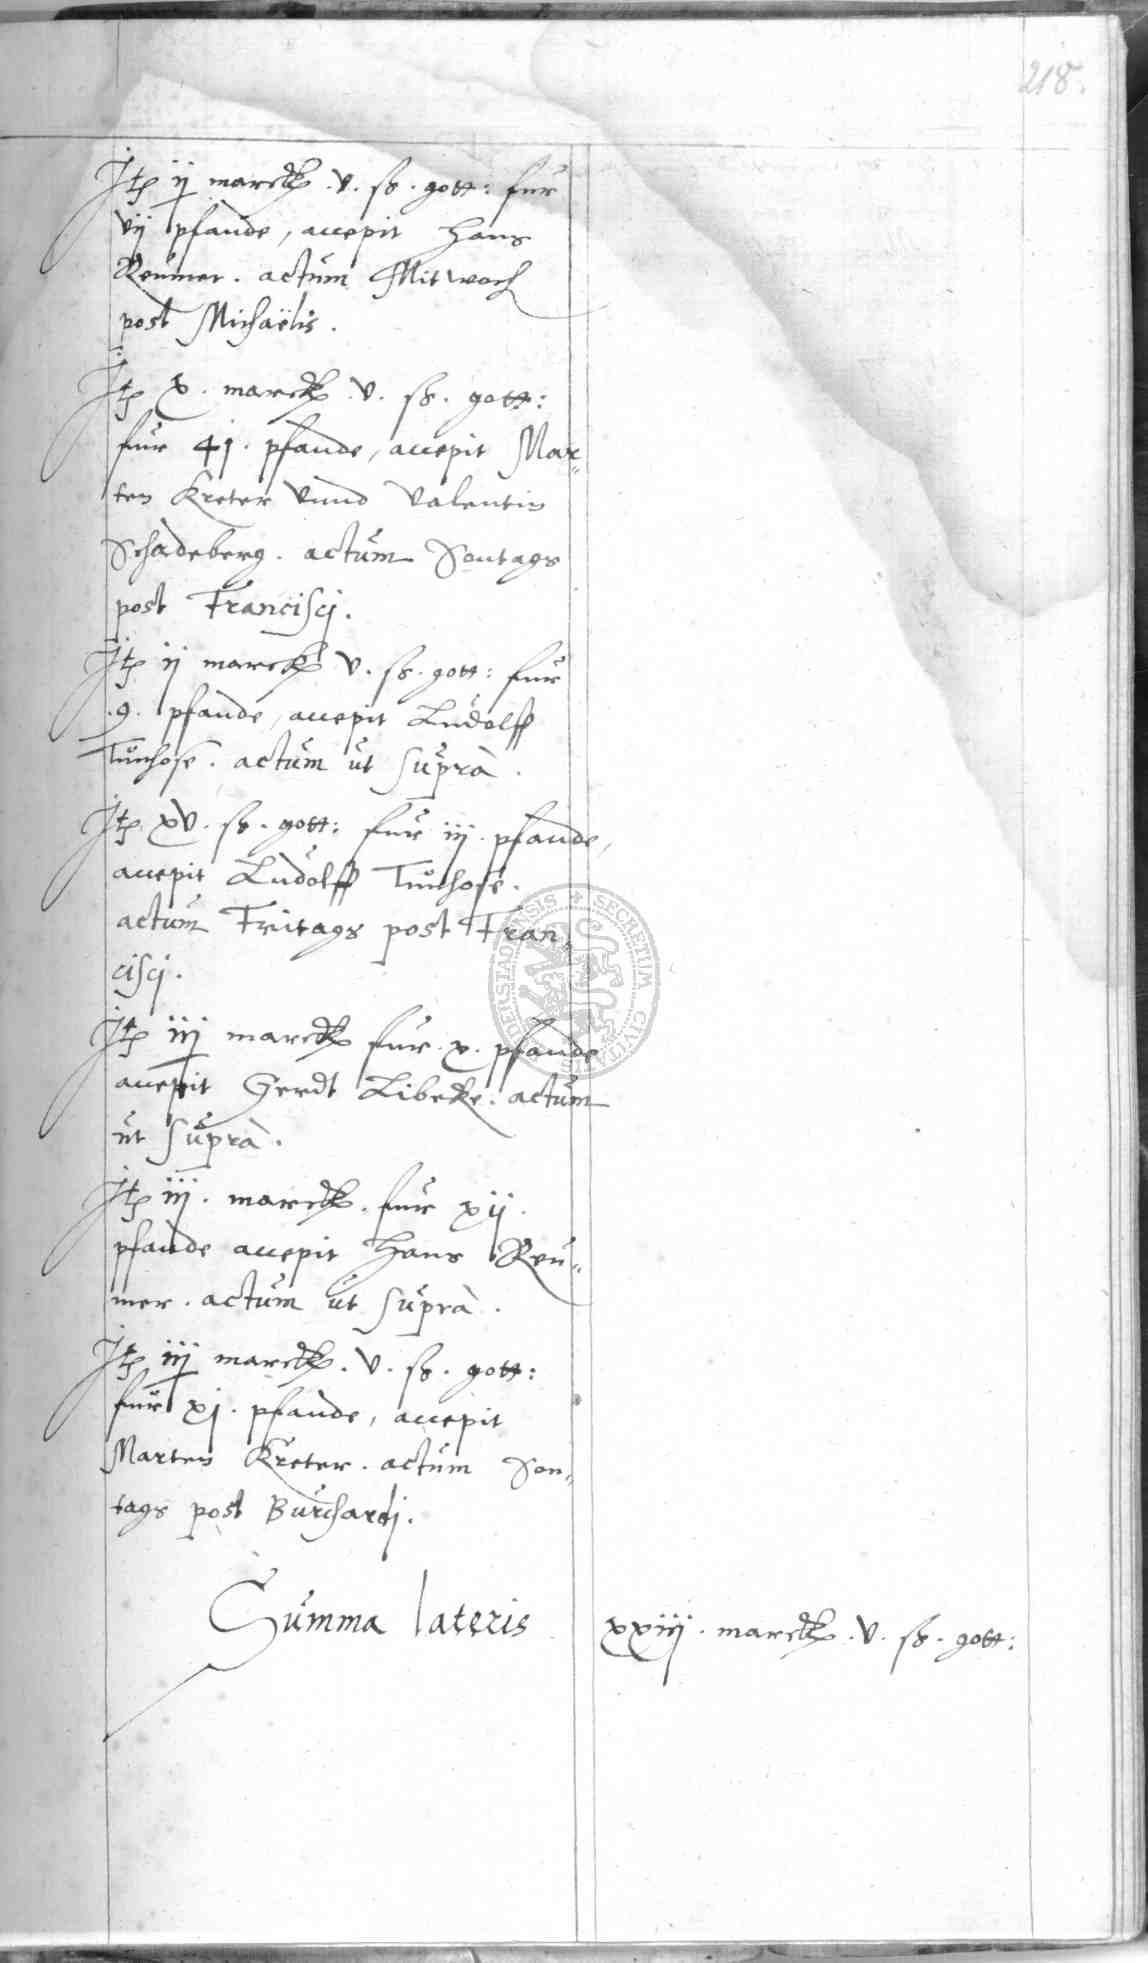 218.
Jt ij marck. v. ß. gott: fur
vij pfande, accepit Hans
Reumer. actum Mitwoch
post Michaëlis.
Jt x. marck. v. ß. gott:
fur 41. pfande, accepit Mar-
ten Kreter Vnnd Valentin
Schadeberg. actum Sontags
post Francisci.
Jt ij marck v. ß. gott: fur
.9. pfande, accepit Ludolff
Tunhose. actum ut suprà.
Jt xv. ß. gott: fur iij. pfande,
accepit Ludolff Tunhose.
actum Fritags post Fran-
cisci.
Jt iij marck fur. x. pfande
accepit Gerdt Libeke. actum
ut suprà.
Jt iij. marck. fur xij.
pfande accepit Hans Reu-
mer. actum ut suprà.
Jt iij marck. v. ß. gott:
fur xj. pfande, accepit
Marten Kreter. actum Son-
tags post Burchardi.
Summa lateris xxiij. marck. v. ß. gott:
SECRETUM CIVITATIS DERSTADENSIS